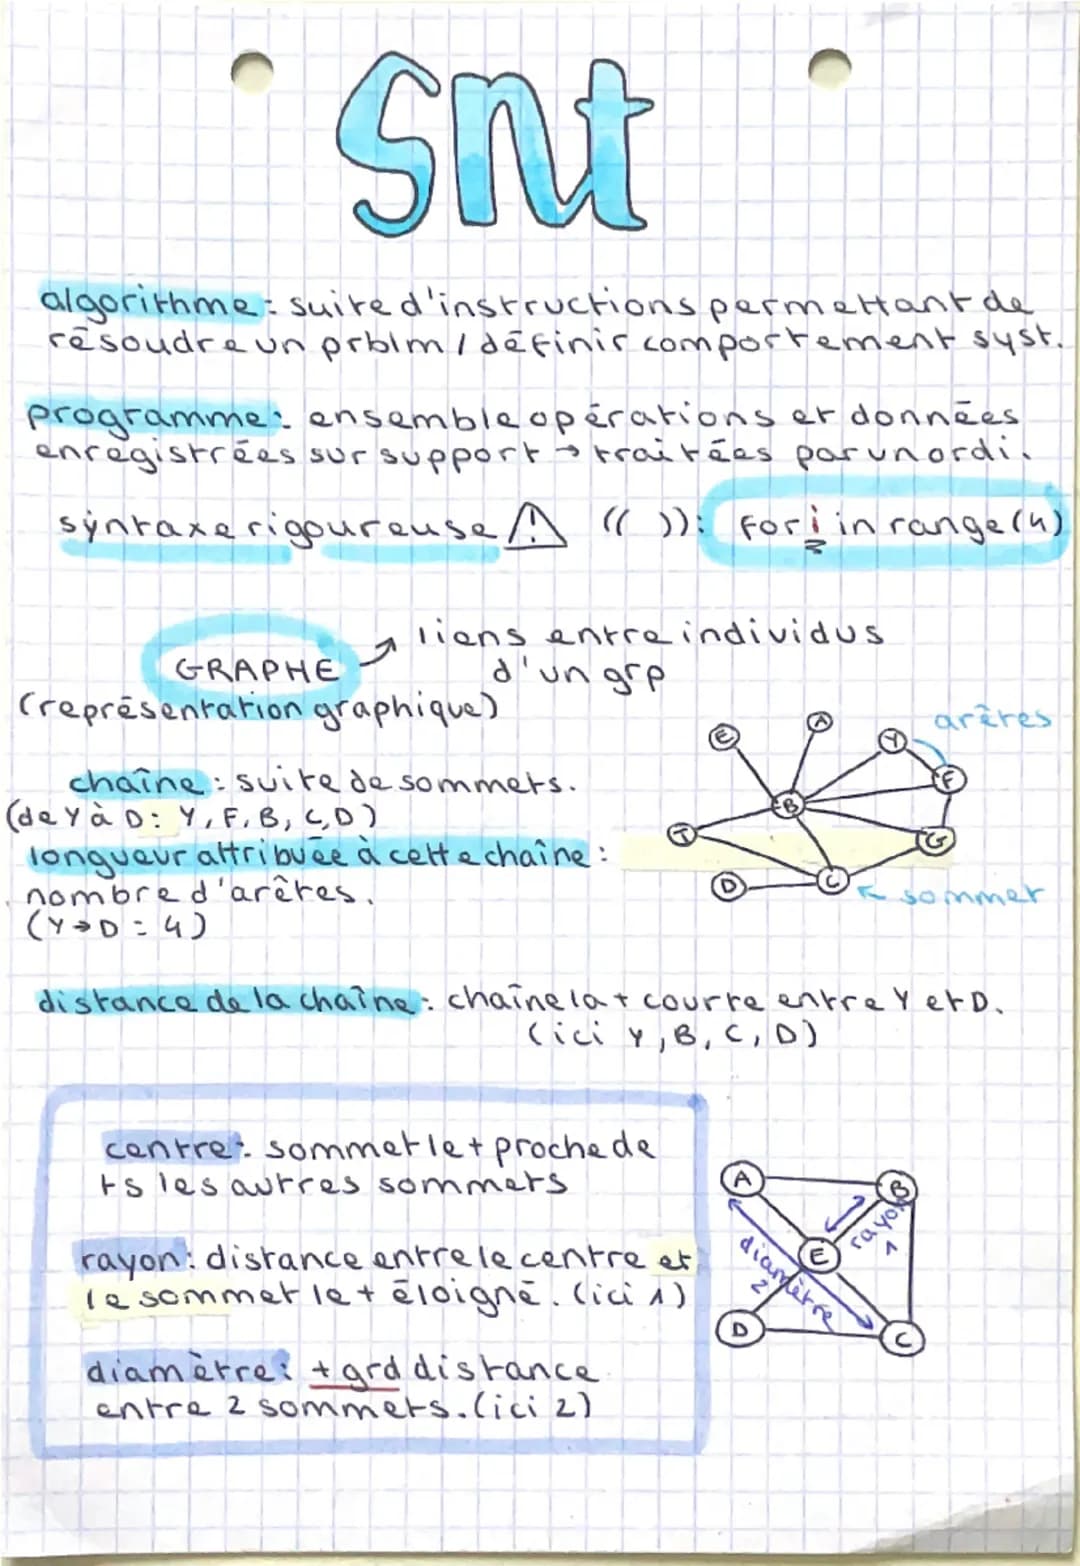 Snt
algorithme : suite d'instructions permettant de
résoudre un prblm / définir comportement syst.
programme : ensemble opérations et données
enregistrées sur support → traitées par un ordi.
syntaxe rigoureuse ⚠ (( )): for i in range (4)
GRAPHE ↗ liens entre individus
d'un grp
(représentation graphique)
arêtes
E A Y
F
B
T G
D C ← sommet
chaîne : suite de sommets.
(de Y à D : Y, F, B, C, D)
longueur attribuée à cette chaîne :
nombre d'arêtes.
(Y→D = 4)
distance de la chaîne : chaîne la + courte entre Y et D.
(ici Y, B, C, D)
centre : sommet le + proche de
ts les autres sommets
rayon : distance entre le centre et
le sommet le + éloigné. (ici 1)
diamètre : + grd distance
entre 2 sommets. (ici 2)
A B
rayon
1
E
diamètre
2
D C